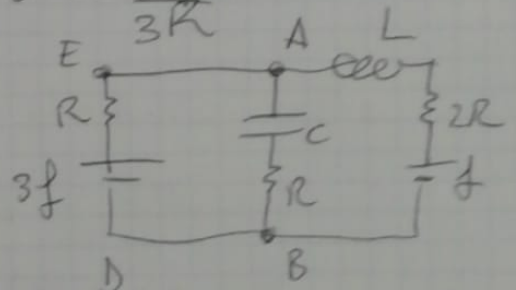 3R
E
A
L
R
C
2R
3f
R
f
D
B